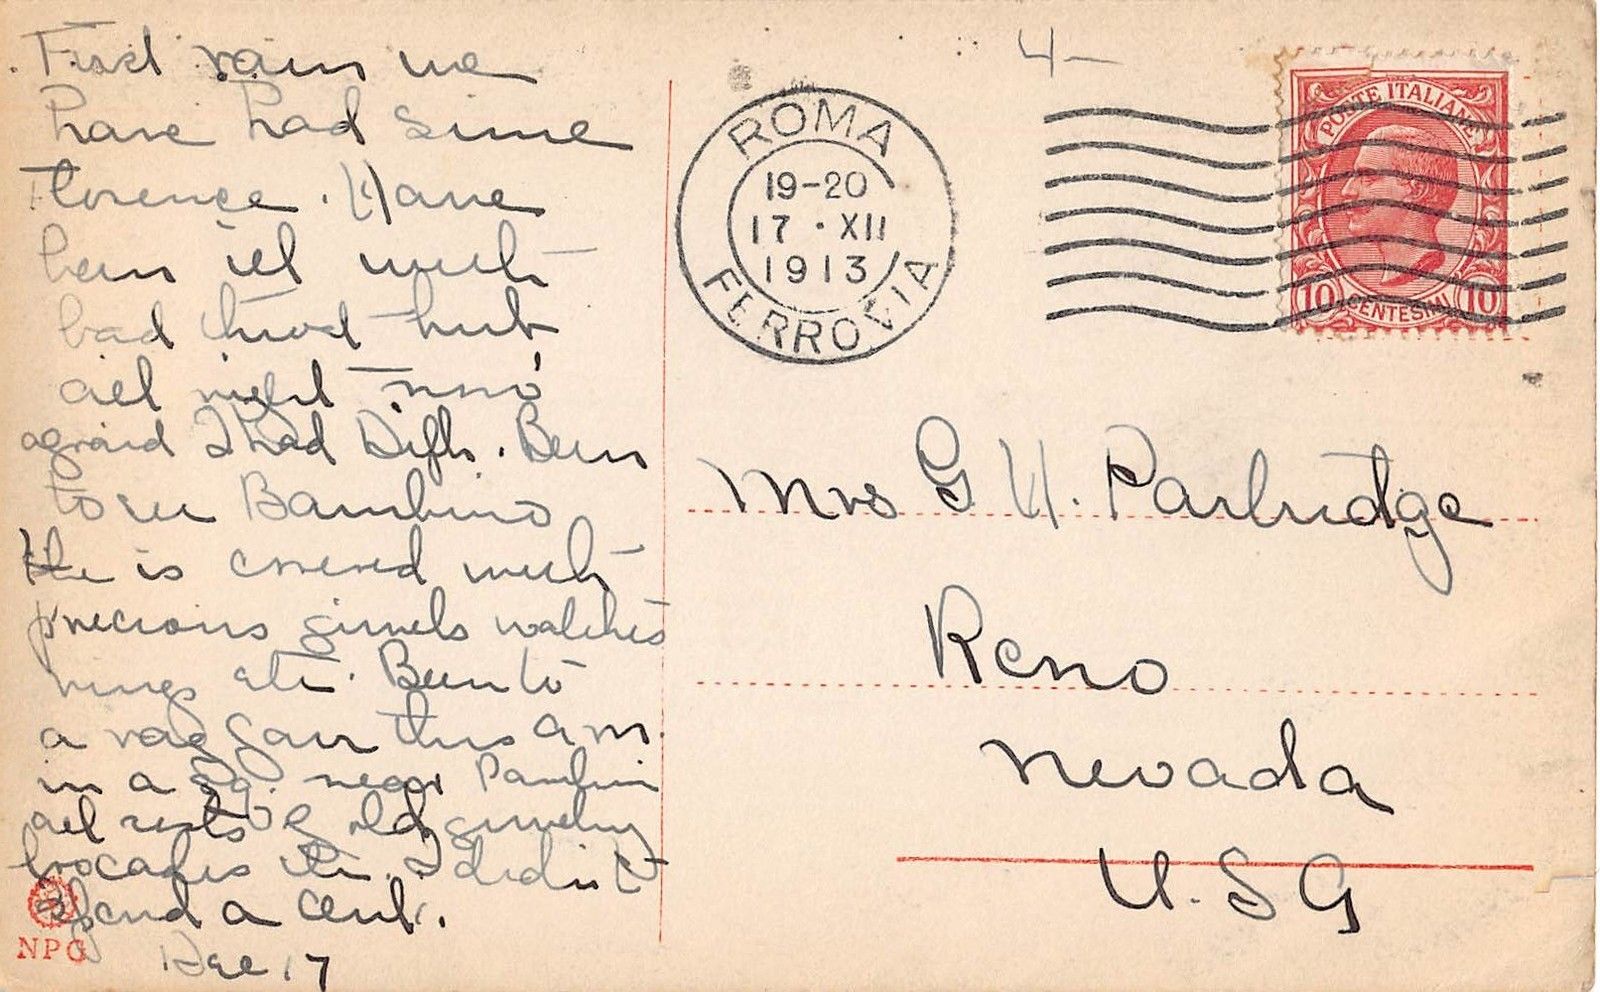 First rain we
have had since
Florence. Have
been ill with
bad throat hurt
all night
afraid I had Difth. Been
to see Bambino
He is covered with
precious jewels watches
rings etc. Been to
a rag fair this a m.
in a Sq. near
all sorts of old jewelry
brocades etc. I didn't
spend a cent.
Dec 17
NPG
4-
ROMA
19-20
17 · XII
1913
FERROVIA
POSTE ITALIANE
10 CENTESIMI 10
Mrs G H. Partridge
Reno
Nevada
U.S A